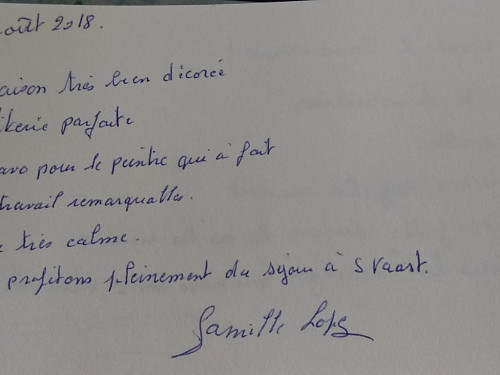 août 2018.
aison très bien décorée
literie parfaite
avo pour le peintre qui à fait
travail remarquable.
e très calme.
profitons pleinement du séjour à S Vaast.
famille Lopez